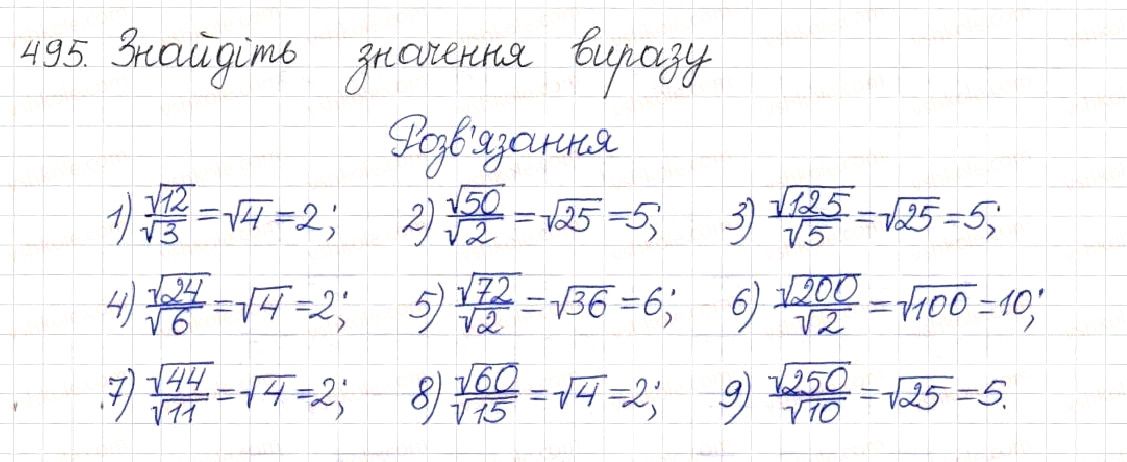 495. Знайдіть значення виразу
Розв'язання
1) √12/√3 = √4 = 2; 2) √50/√2 = √25 = 5; 3) √125/√5 = √25 = 5;
4) √24/√6 = √4 = 2; 5) √72/√2 = √36 = 6; 6) √200/√2 = √100 = 10;
7) √44/√11 = √4 = 2; 8) √60/√15 = √4 = 2; 9) √250/√10 = √25 = 5.